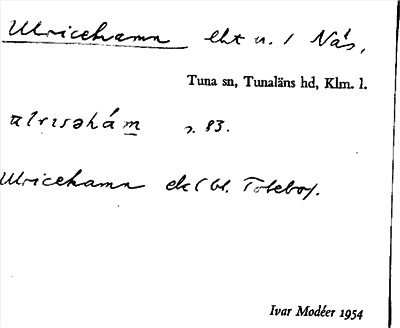 Ulricehamn lht u. / Näs,
Tuna sn, Tunaläns hd, Klm. l.
ulrısəhám s. 83.
Ulricehamn ek
Ivar Modéer 1954